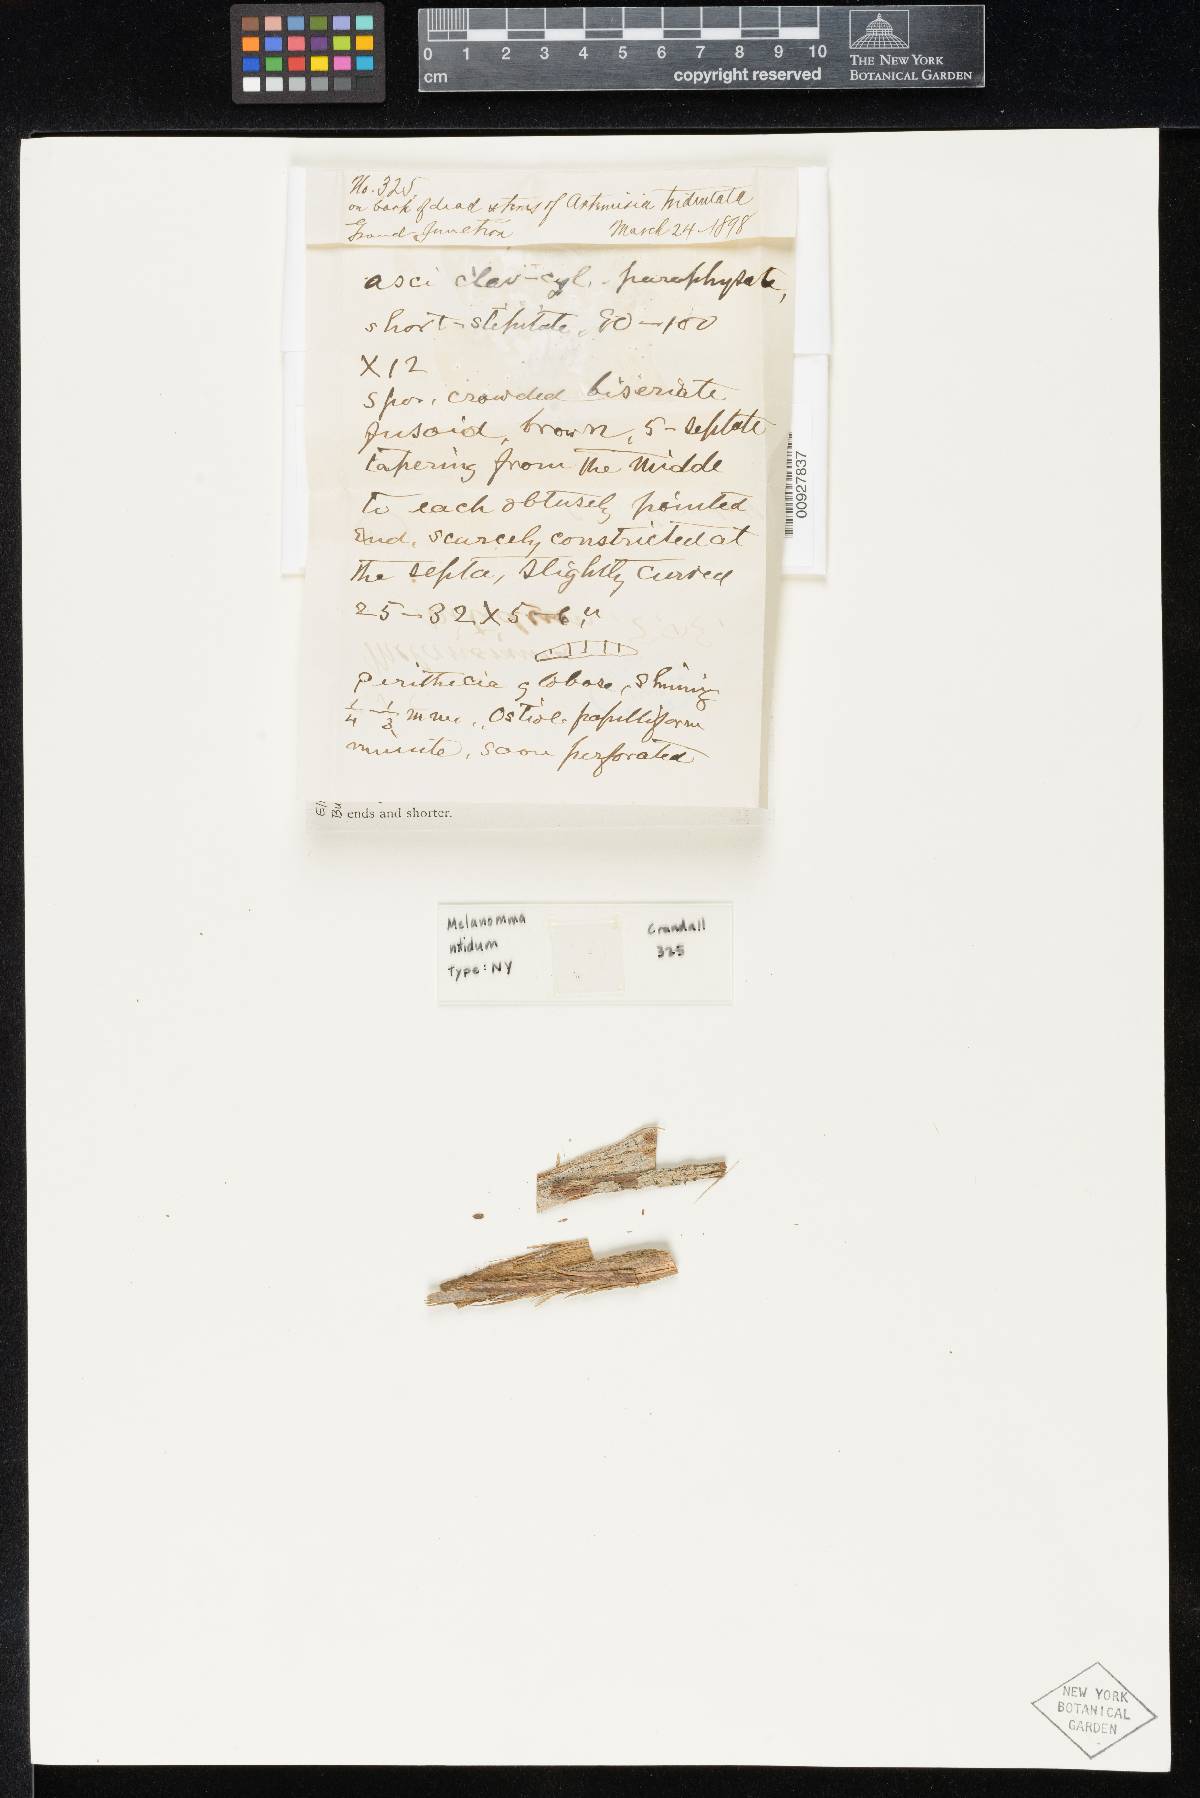 0 1 2 3 4 5 6 7 8 9 10
cm
copyright reserved
THE NEW YORK
BOTANICAL GARDEN
No. 325
on bark of dead stems of Artemisia tridentata
Grand Junction March 24-1898
asci clav-cyl. - paraphysate,
short-stipitate, 80-100
X 12
spor. crowded biseriate
fusoid, brown, 5-septate
tapering from the midde
to each obtusely pointed
end, scarcely constricted at
the septa, slightly curved
25-32 X 5-6 µ
perithecia globose, shining
1/4-1/3 mm., ostiole papilliform
minute, soon perforated
00927837
ends and shorter.
Melanomma
nitidum
Type: NY
Crandall
325
NEW YORK
BOTANICAL
GARDEN